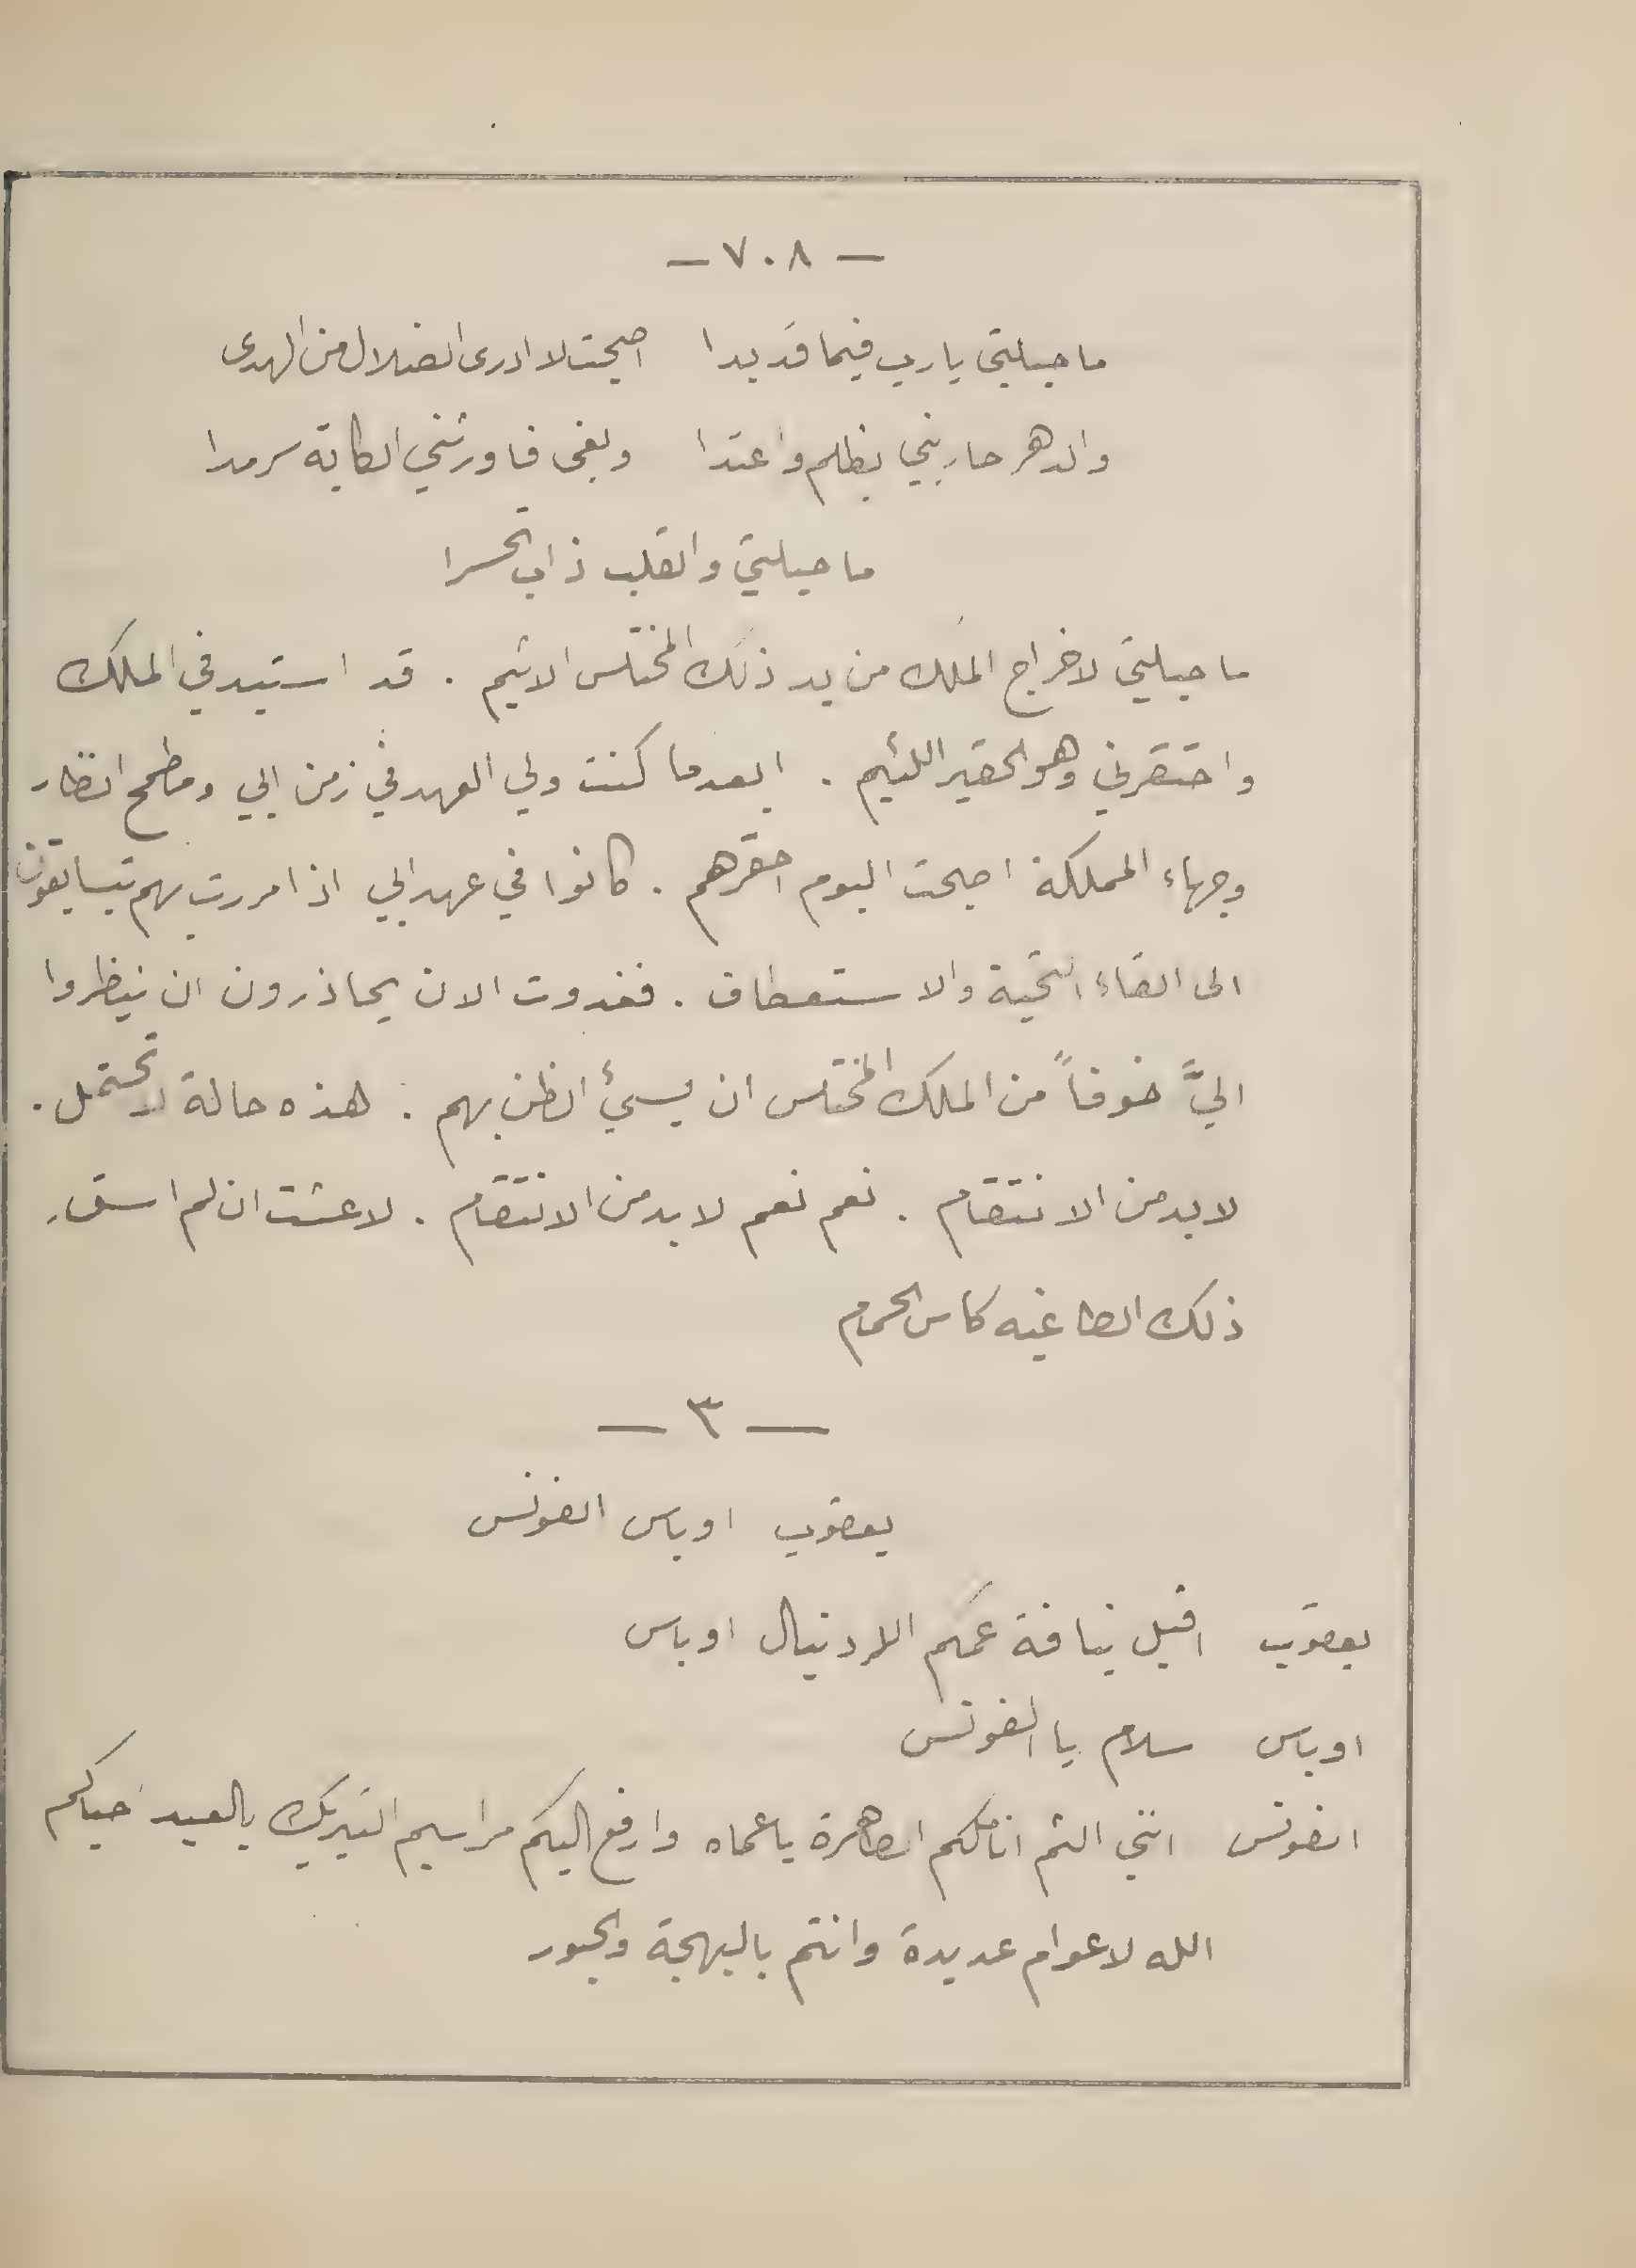 — ٧٠٨ —
ما حيلتي يا رب فيما قد بدا اصبحت لا ادرى الضلال من الهدى
والدهر حاربني بظلم واعتدا وبغى فاورثني الكابة سرمدا
ما حيلتي والقلب ذاب تحسرا
ما حيلتي لاخراج الملك من يد ذلك المختلس الاثيم . قد استبد في الملك
واحتقرني وهو الحقير اللئيم . ابعدما كنت ولي العهد في زمن ابي ومطمح انظار
وجهاء المملكة اصبحت اليوم احقرهم . كانوا في عهد ابي اذا مررت بهم يتسابقون
الى القاء التحية والاستعطاف . فغدوت الان يحاذرون ان ينظروا
اليَّ خوفاً من الملك المختلس ان يسئ الظن بهم . هذه حالة لا تحتمل .
لا بد من الانتقام . نعم نعم لا بد من الانتقام . لا عشت ان لم اسق
ذلك الطاغيه كاس الحمام
— ٣ —
يعقوب اوباس الفونس
يعقوب اقبل نيافة عمكم الكردينال اوباس
اوباس سلام يا الفونس
الفونس انني الثم اناملكم الطاهرة يا عماه وارفع اليكم مراسيم التبريك بالعيد احياكم
الله لاعوام عديدة وانتم بالبهجة والحبور